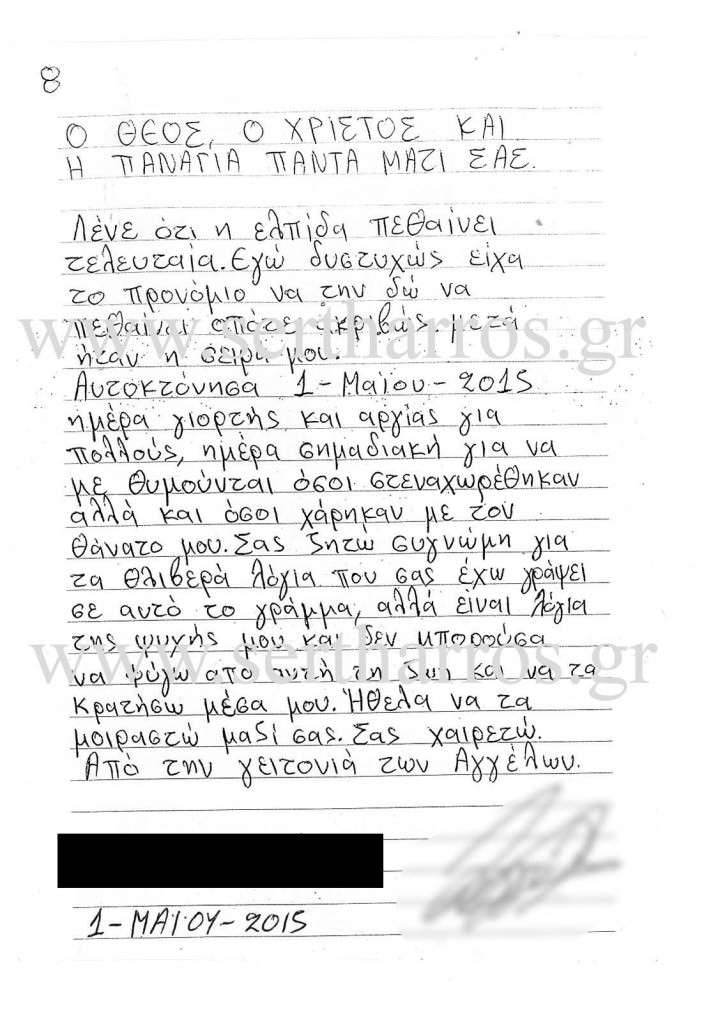 8
Ο ΘΕΟΣ, Ο ΧΡΙΣΤΟΣ ΚΑΙ
Η ΠΑΝΑΓΙΑ ΠΑΝΤΑ ΜΑΖΙ ΣΑΣ.
Λένε ότι η ελπίδα πεθαίνει
τελευταία. Εγώ δυστυχώς είχα
το προνόμιο να την δώ να
πεθαίνει οπότε ακριβώς μετά
ήταν η σειρά μου.
www.sertharros.gr
Αυτοκτόνησα 1-Μαϊου-2015
ημέρα γιορτής και αργίας για
πολλούς, ημέρα σημαδιακή για να
με θυμούνται όσοι στεναχωρέθηκαν
αλλά και όσοι χάρηκαν με τον
θάνατο μου. Σας ζητώ συγνώμη για
τα θλιβερά λόγια που σας έχω γράψει
σε αυτό το γράμμα, αλλά είναι λόγια
της ψυχής μου και δεν μπορούσα
www.sertharros.gr
να φύγω από αυτή τη ζωή και να τα
κρατήσω μέσα μου. Ήθελα να τα
μοιραστώ μαζί σας. Σας χαιρετώ.
Από την γειτονιά των Αγγέλων.
1-ΜΑΪΟΥ-2015